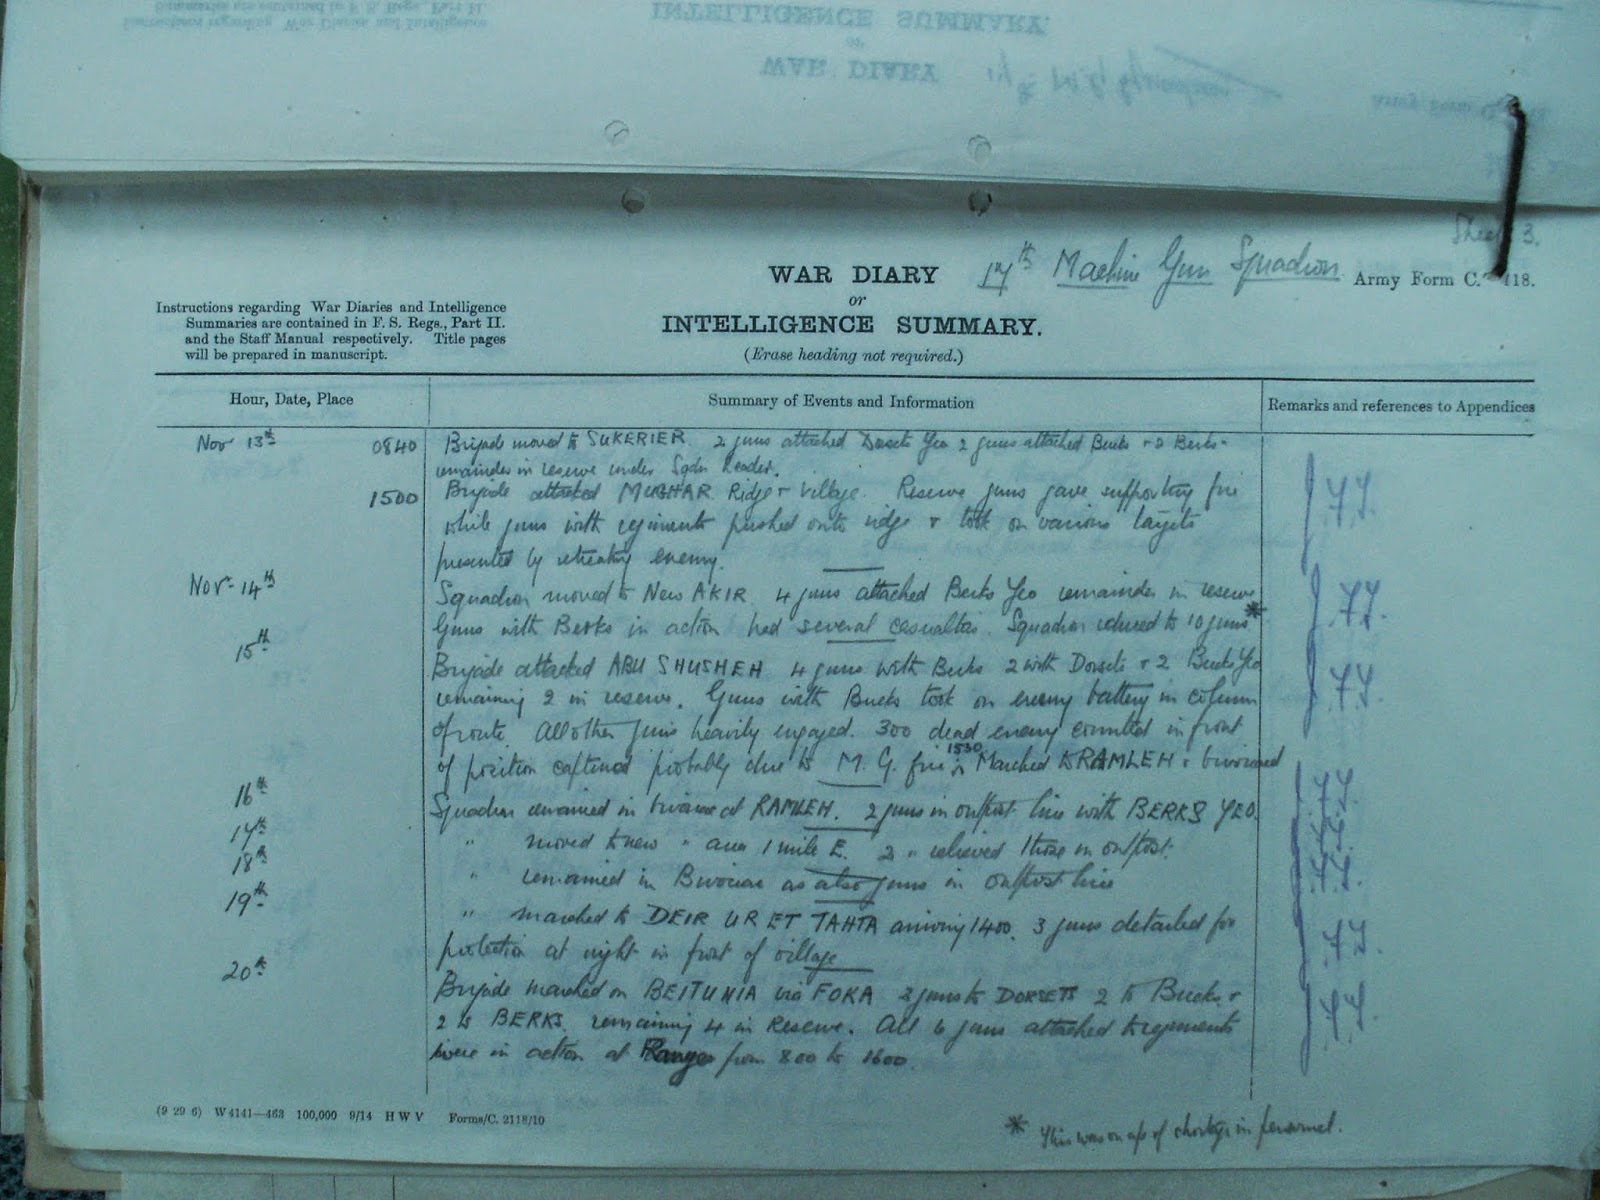 INTELLIGENCE SUMMARY.
or
WAR DIARY
Sheet 3.
WAR DIARY 17th Machine Gun Squadron Army Form C. 2118.
or
INTELLIGENCE SUMMARY.
(Erase heading not required.)
Instructions regarding War Diaries and Intelligence
Summaries are contained in F. S. Regs., Part II.
and the Staff Manual respectively. Title pages
will be prepared in manuscript.
Hour, Date, Place Summary of Events and Information Remarks and references to Appendices
Nov 13th 0840 Brigade moved to SUKERIER. 2 guns attached Dorsets Yeo 2 guns attached Bucks + 2 Berks -
remainder in reserve under Sqdn Leader.
1500 Brigade attacked MUGHAR Ridge + Village. Reserve guns gave supporting fire
while guns with regiments pushed onto ridge + took on various targets
presented by retreating enemy.
Nov. 14th Squadron moved to New AKIR 4 guns attached Berks Yeo remainder in reserve
Guns with Berks in action had several casualties. Squadron reduced to 10 guns *
15th Brigade attacked ABU SHUSHEH 4 guns with Berks 2 with Dorsets + 2 Bucks Yeo
remaining 2 in reserve. Guns with Bucks took on enemy battery in column
of route. All other guns heavily engaged. 300 dead enemy counted in front
of position captured probably due to M. G. fire. 1530 Marched to RAMLEH + bivouaced
16th Squadron remained in bivouac at RAMLEH. 2 guns in outpost line with BERKS YEO.
17th " moved to new " area 1 mile E. 2 " relieved those on outpost.
18th " remained in Bivouac as also guns in outpost line
19th " marched to DEIR UR ET TAHTA arriving 1400. 3 guns detached for
protection at night in front of village
20th Brigade marched on BEITUNIA via FOKA 2 guns to DORSETS 2 to Bucks +
2 to BERKS. remaining 4 in Reserve. All 6 guns attached to regiments
were in action at Ranges from 800 to 1600.
(9 29 6) W 4141—463 100,000 9/14 H W V Forms/C. 2118/10
* This was on a/c of shortage in personnel.